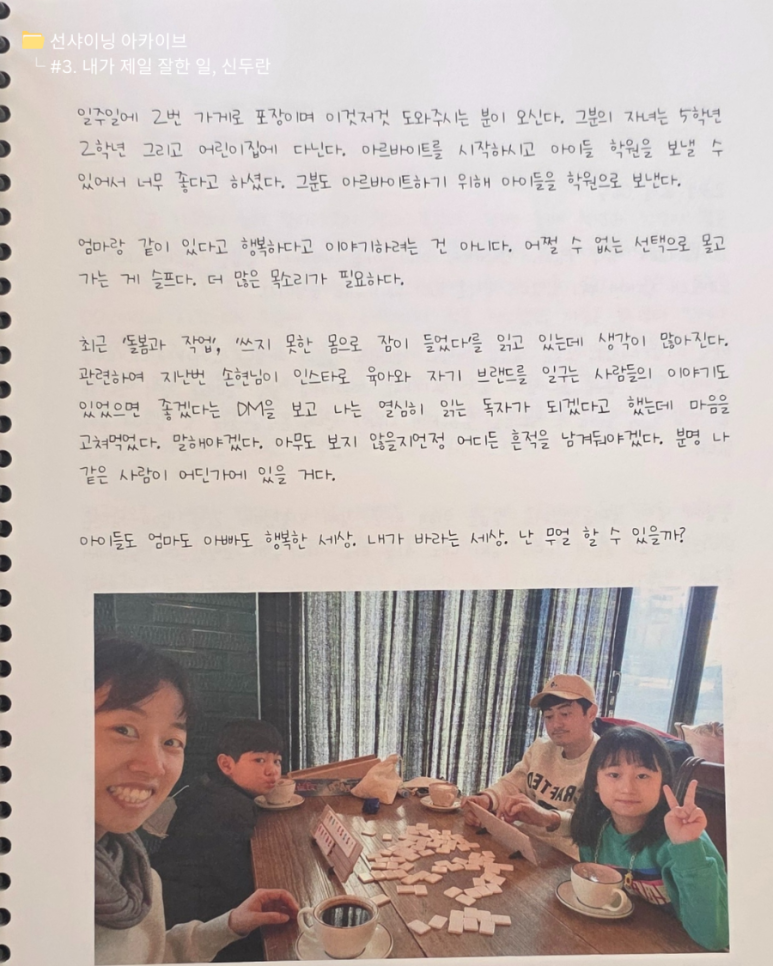 선샤이닝 아카이브
#3. 내가 제일 잘한 일, 신두란
일주일에 2번 가게로 포장이며 이것저것 도와주시는 분이 오신다. 그분의 자녀는 5학년
2학년 그리고 어린이집에 다닌다. 아르바이트를 시작하시고 아이들 학원을 보낼 수
있어서 너무 좋다고 하셨다. 그분도 아르바이트하기 위해 아이들을 학원으로 보낸다.
엄마랑 같이 있다고 행복하다고 이야기하려는 건 아니다. 어쩔 수 없는 선택으로 몰고
가는 게 슬프다. 더 많은 목소리가 필요하다.
최근 '돌봄과 작업', '쓰지 못한 몸으로 잠이 들었다'를 읽고 있는데 생각이 많아진다.
관련하여 지난번 손현님이 인스타로 육아와 자기 브랜드를 일구는 사람들의 이야기도
있었으면 좋겠다는 DM을 보고 나는 열심히 읽는 독자가 되겠다고 했는데 마음을
고쳐먹었다. 말해야겠다. 아무도 보지 않을지언정 어디든 흔적을 남겨둬야겠다. 분명 나
같은 사람이 어딘가에 있을 거다.
아이들도 엄마도 아빠도 행복한 세상. 내가 바라는 세상. 난 무얼 할 수 있을까?
CRAFTED